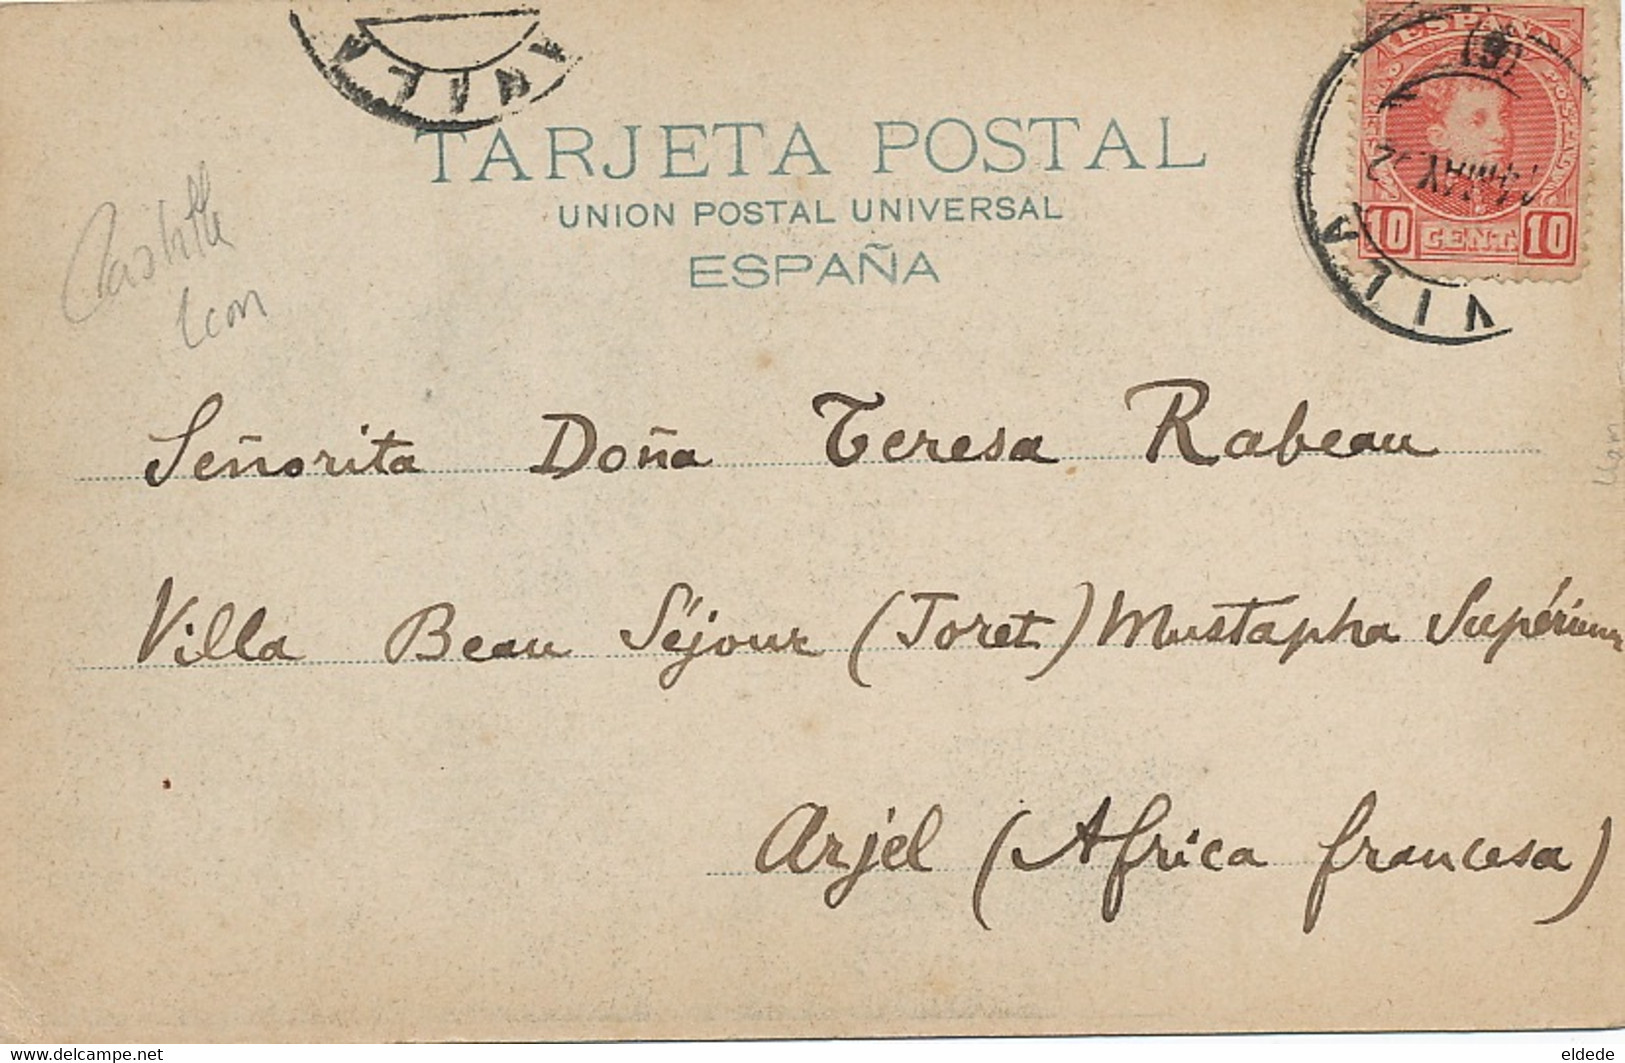 AVILA
TARJETA POSTAL
UNION POSTAL UNIVERSAL
ESPAÑA
ESPAÑA
10 CENT. 10
AVILA
MAY
Castilla
Leon
Señorita Doña Teresa Rabeau
Villa Beau Séjour (Toret) Mustapha Supérieur
Arjel (Africa francesa)
www.delcampe.net
eldede